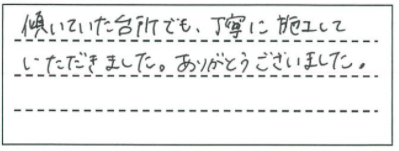 傾いていた台所でも、丁寧に施工して
いただきました。ありがとうございました。